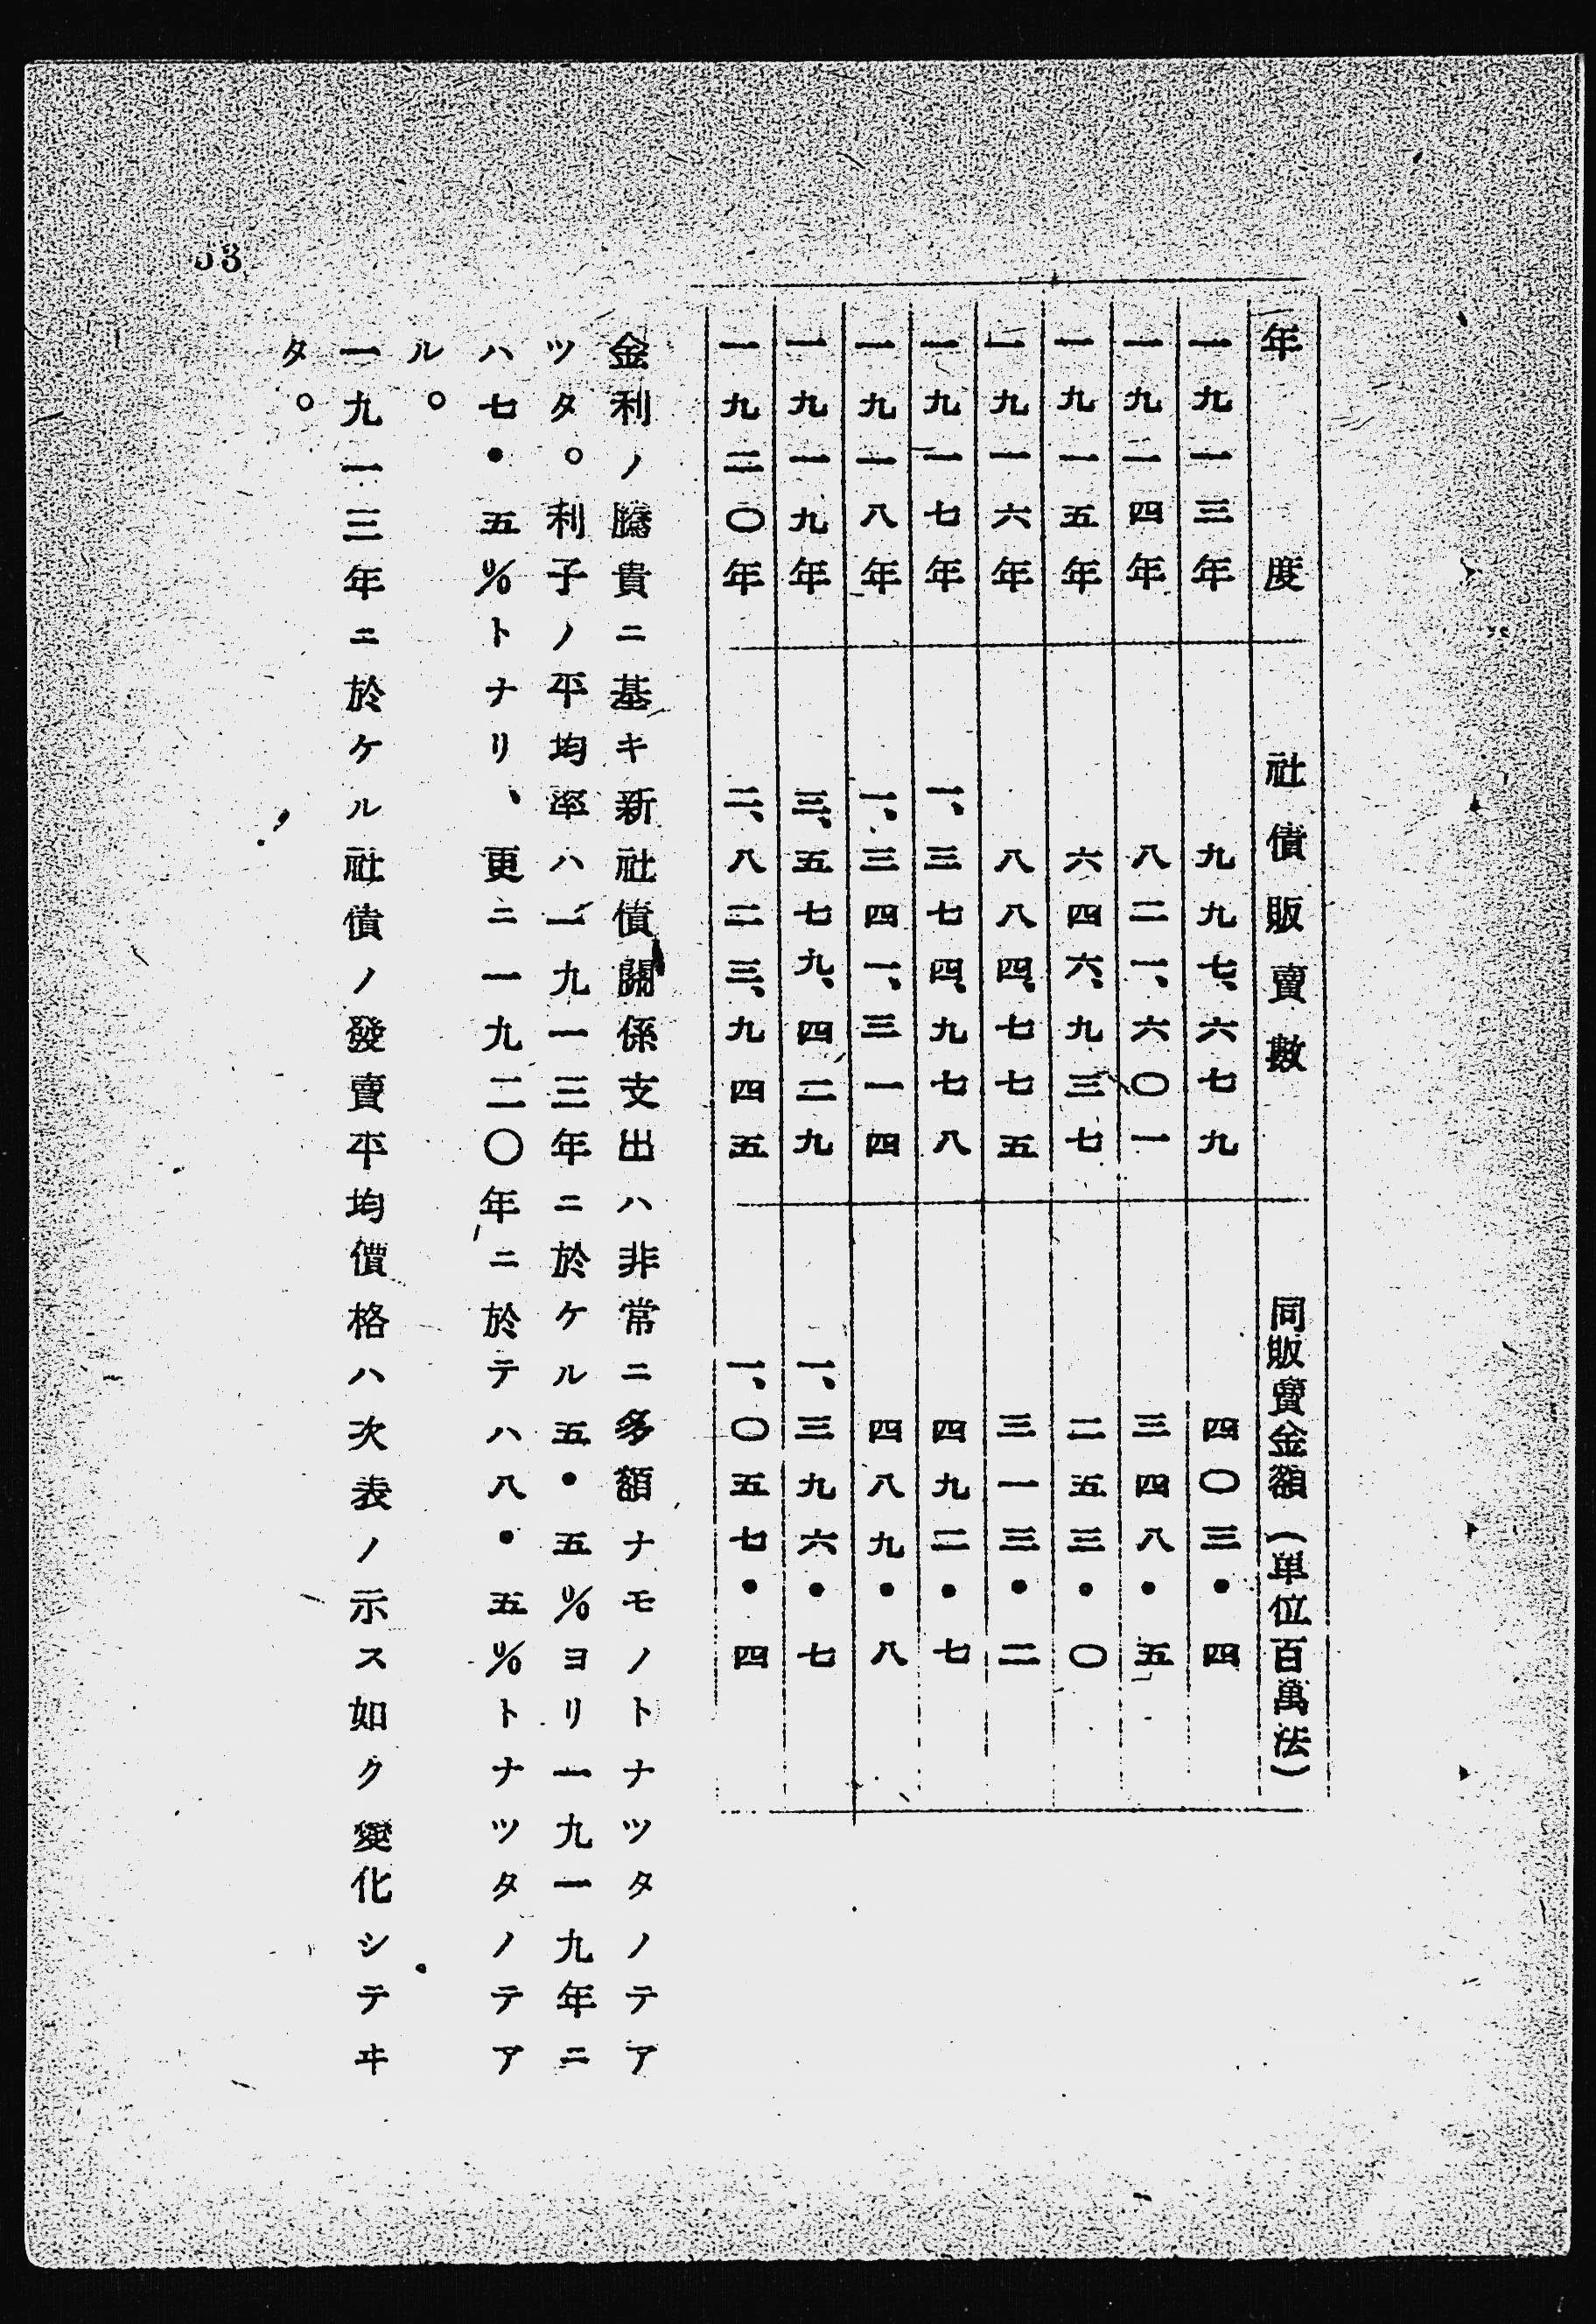 年度 社債販賣數 同販賣金額(單位百萬法)
一九一三年 九九七、六七九 四〇三・四
一九一四年 八二一、六〇一 三四八・五
一九一五年 六四六、九三七 二五三・〇
一九一六年 八八四、七七五 三一三・二
一九一七年 一、三七四、九七八 四九二・七
一九一八年 一、三四一、三一四 四八九・八
一九一九年 三、五七九、四二九 一、三九六・七
一九二〇年 二、八二三、九四五 一、〇五七・四
金利ノ騰貴ニ基キ新社債關係支出ハ非常ニ多額ナモノトナツタノテア
ツタ。利子ノ平均率ハ一九一三年ニ於ケル五・五%ヨリ一九一九年ニ
ハ七・五%トナリ、更ニ一九二〇年ニ於テハ八・五%トナツタノテア
ル。
一九一三年ニ於ケル社債ノ發賣平均價格ハ次表ノ示ス如ク變化シテヰ
タ。